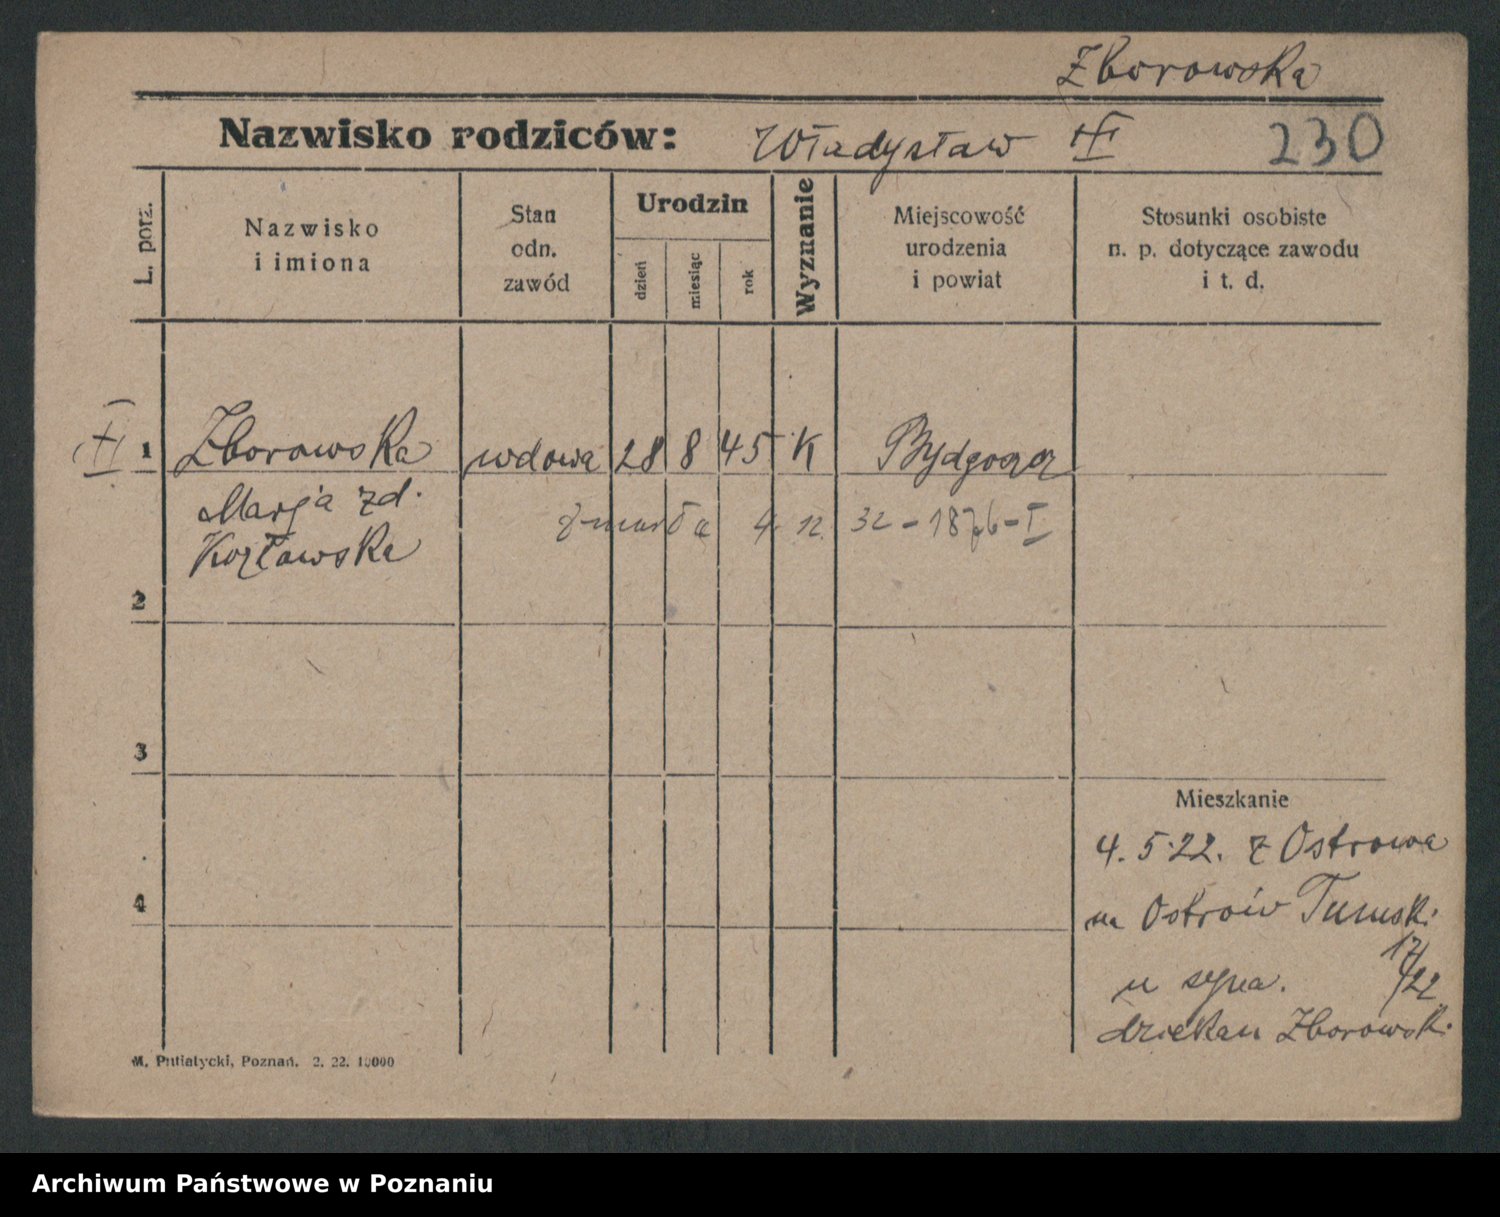 Zborowska
Nazwisko rodziców: Władysław 230
L. porz.
Nazwisko
i imiona
Stan
odn.
zawód
Urodzin
dzień
miesiąc
rok
Wyznanie
Miejscowość
urodzenia
i powiat
Stosunki osobiste
n. p. dotyczące zawodu
i t. d.
1 Zborowska wdowa 28 8 45 K Bydgoszcz
Marja zd.
zmarła 4. 12. 32 - 1876 - I
Kozławska
2
3
Mieszkanie
4. 5. 22. z Ostrowa
4
na Ostrów Tumski
17/
u syna. /22
dziekan Zborowski
M. Putiatycki, Poznań. 2. 22. 10000
Archiwum Państwowe w Poznaniu